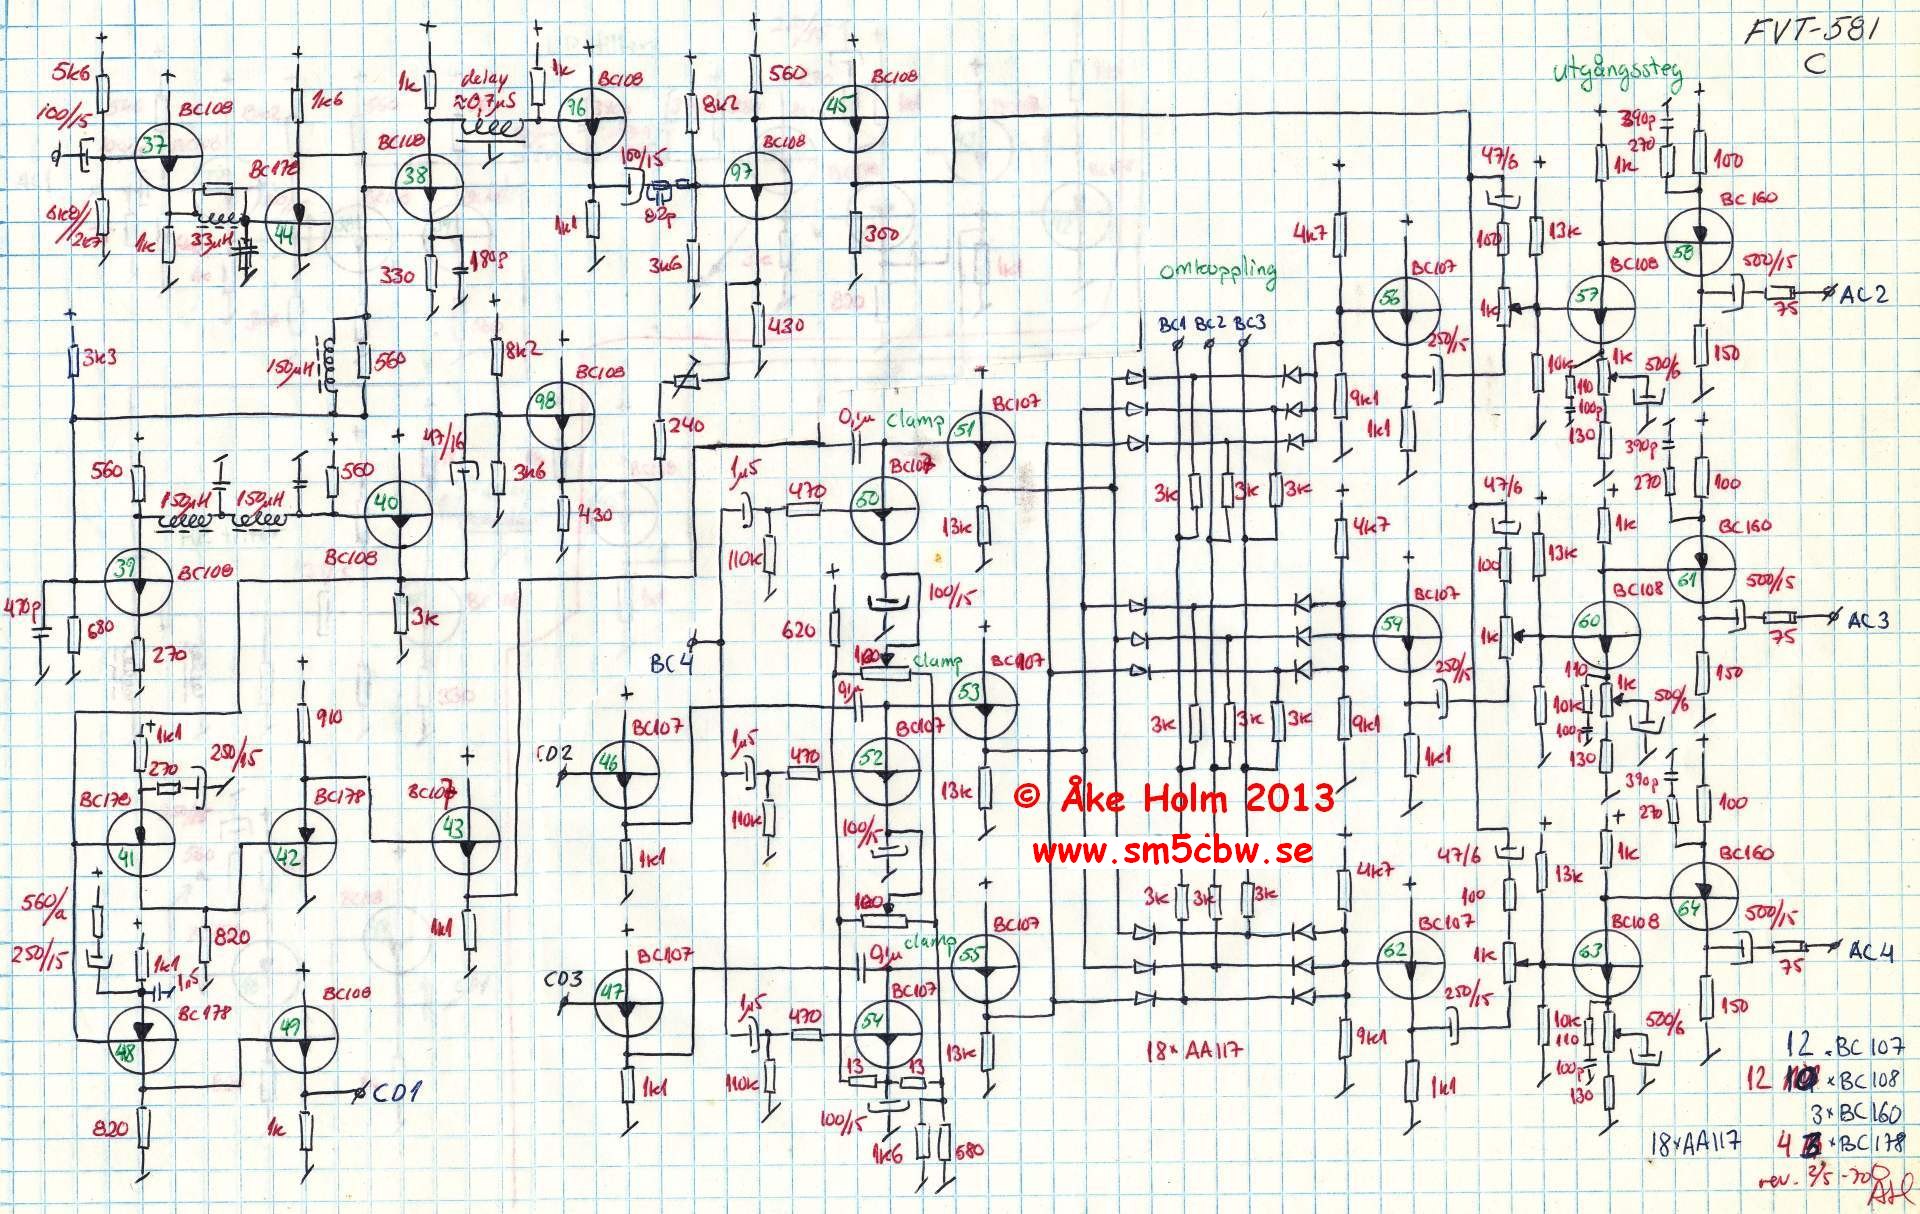 FVT-581
C
utgångssteg
5k6
100/15
37
BC108
1k6
1k
delay
≈0,7µS
1k
96
BC108
8k2
560
45
BC108
390p
270
1k
100
6k8/
2k7
1k
33µH
BC178
44
BC108
38
330
180p
100/15
1k1
82p
3k6
BC108
97
300
47/6
100
13k
4k7
BC160
58
500/15
75
AC2
omkoppling
BC1 BC2 BC3
BC107
56
250/15
1k
BC108
57
150
3k3
150µH
560
8k2
BC108
98
430
240
9k1
1k1
10k
110
100p
1k
500/6
130
390p
270
100
560
150µH
150µH
560
40
BC108
47/16
3k6
430
0,1µ
clamp
51
BC107
1µ5
470
BC107
50
110k
13k
3k
3k
3k
4k7
47/6
100
13k
1k
BC160
61
500/15
75
AC3
39
BC108
470p
680
270
3k
100/15
620
BC4
100
clamp
BC107
59
250/15
1k
BC108
60
150
53
BC107
0,1µ
BC107
52
1µ5
470
110k
13k
3k
3k
3k
9k1
1k1
10k
110
100p
1k
500/6
130
390p
270
100
910
1k1
270
250/15
BC178
41
BC178
42
BC107
43
CD2
46
BC107
1k1
© Åke Holm 2013
www.sm5cbw.se
560/a
250/15
820
1k1
1n5
1k1
100/15
100
clamp
0,1µ
55
BC107
3k
3k
3k
4k7
47/6
100
13k
1k
BC160
64
500/15
75
AC4
BC178
48
BC108
49
CD1
820
1k
CD3
47
BC107
1k1
1µ5
470
BC107
54
110k
13
13
100/15
1k6
680
13k
18×AA117
BC107
62
250/15
1k
BC108
63
150
9k1
1k1
10k
110
100p
500/6
130
12 ×BC107
12 ×BC108
3×BC160
18×AA117
4 ×BC178
rev. 2/5-70